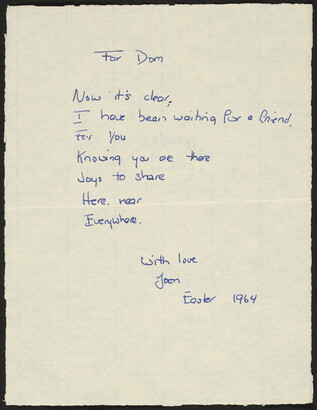 For Dom
Now it's clear,
I have been waiting for a friend,
For you
Knowing you are there
Joys to share
Here, near
Everywhere.
With love
Joan
Easter 1964